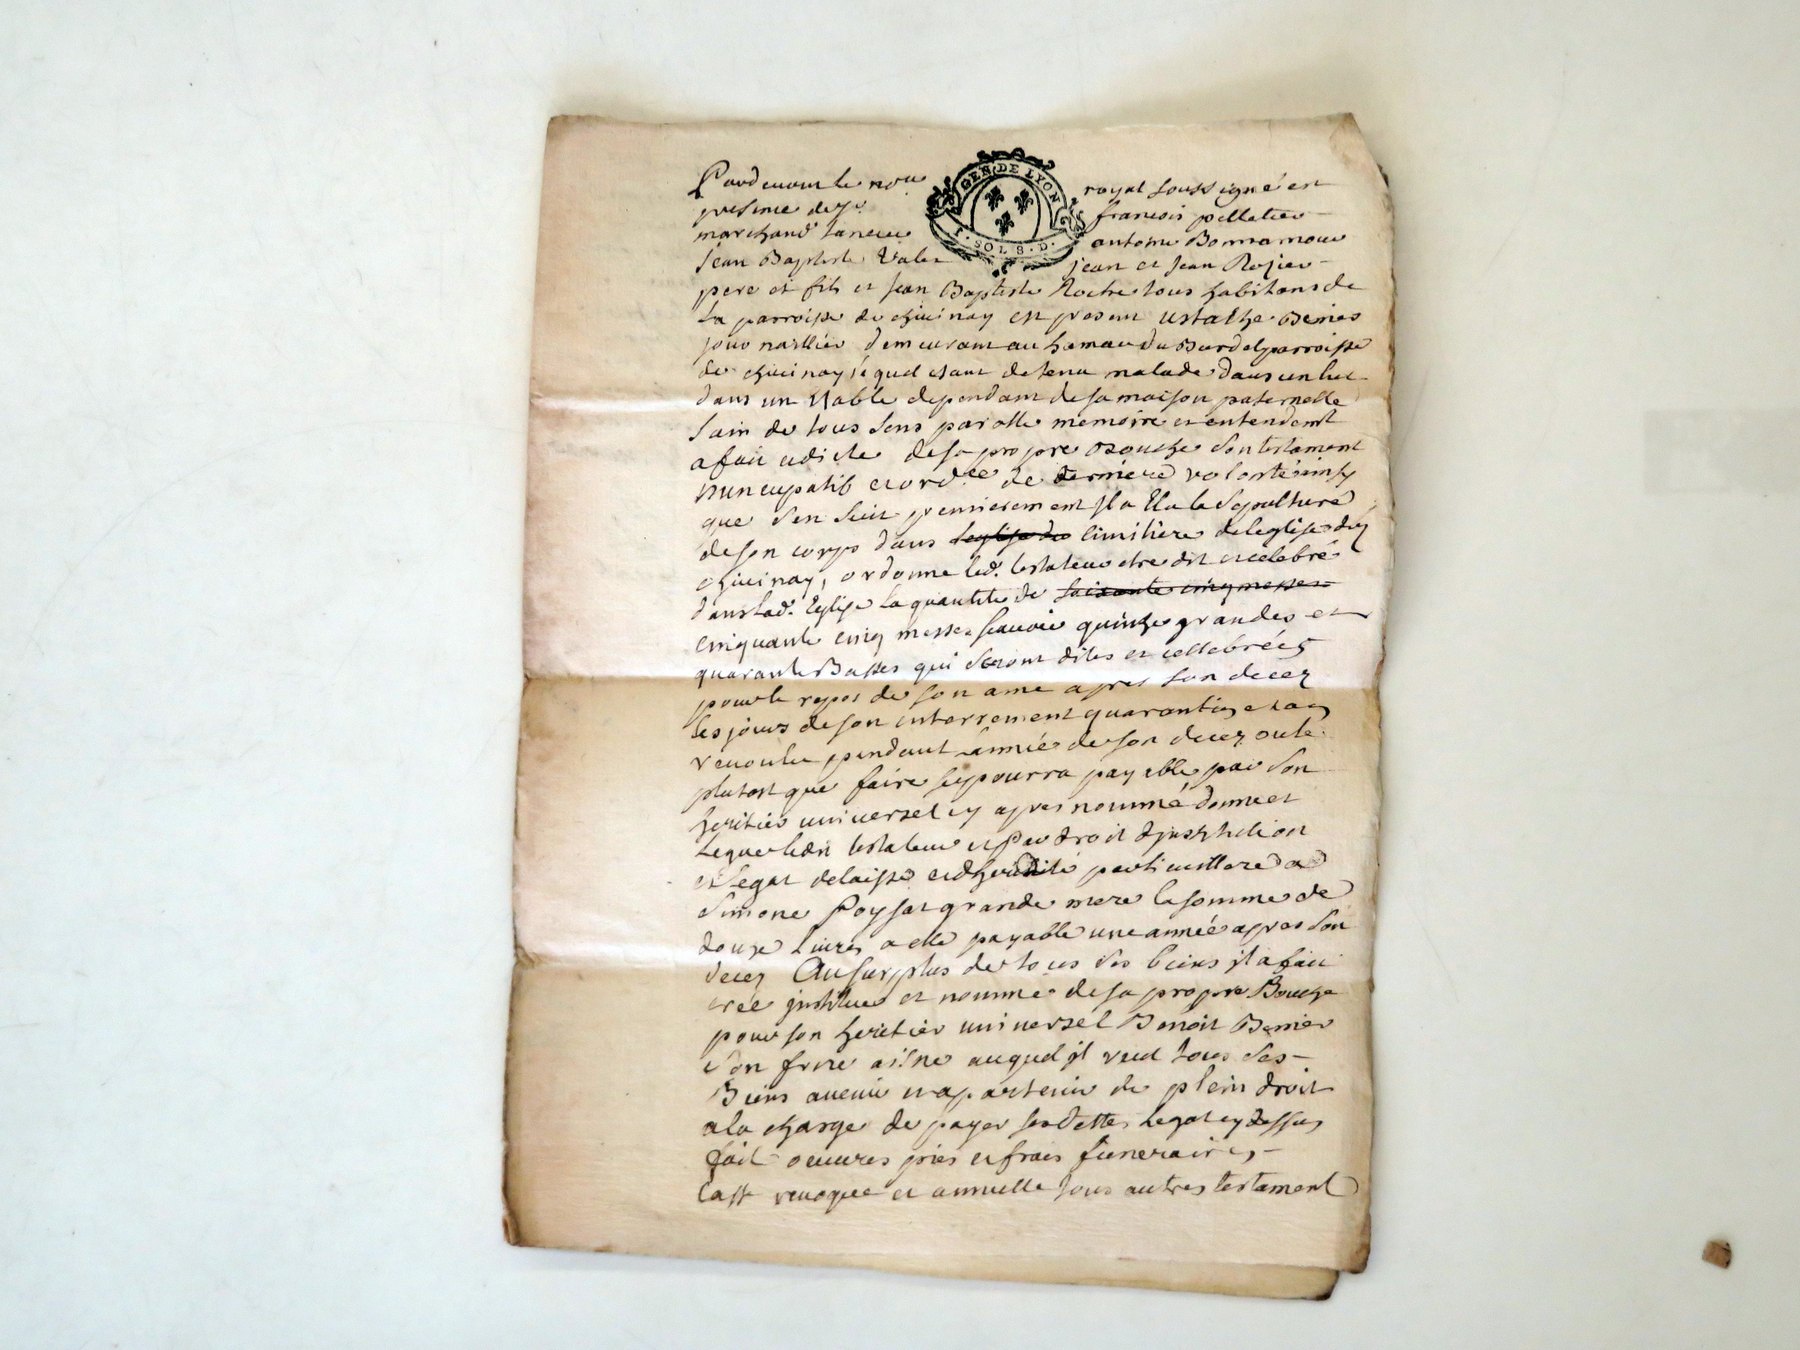 GEN. DE LYON
I. SOL S. D.
Pardevant le no.re royal soussigné et
presence de s.r françois pelletier
marchand taneur antoine Bonnamour
jean Baptiste Valet jean et jean Rozier
pere et fils et jean Baptiste Roche tous habitans de
la parroisse de chivinay est present ustache Benier
journallier demeurant au hamau du Burdel parroisse
de chivinay, lequel etant detenu malade dans un lit
dans un Etable dependant de sa maison paternelle
sain de tous sens parolle memoire et entendemt
a fait et dicte de sa propre bouche son testament
nuncupatif et ord.ce de derniere volonté ainsy
que s'en suit premierement jl a Elu la sepulture
de son corps dans leglise du cimitiere de leglise dud
chivinay, ordonne led. testateur etre dit et celebré
dans lad. Eglise la quantité de soixante cinq messes
cinquante cinq messes scavoir quinze grandes et
quarante Basses qui seront dites et cellebrées
pour le repos de son ame apres son decez
les jours de son interrement quarantin et
revoulu pendant lannée de son decez ou le
plutost que faire se pourra payable par son
heritier universel cy apres nommé donne et
legue ledit testateur et par droit djnstitution
et legat delaisse et dheredité particuillere a
Simone Poysat grande mere la somme de
douze Livres a elle payable une année apres son
decez Au surplus de tous ses biens jl a fait
creé jnstitué et nommé de sa propre Bouche
pour son heritier universel Benoit Benier
son frere aisne auquel jl veut tous ses
Biens avenir et apartenir de plein droit
a la charge de payer ses dettes Legat cy dessus
fait oeuvres pies et frais funeraires,
Casse revoque et annulle tous autres testament